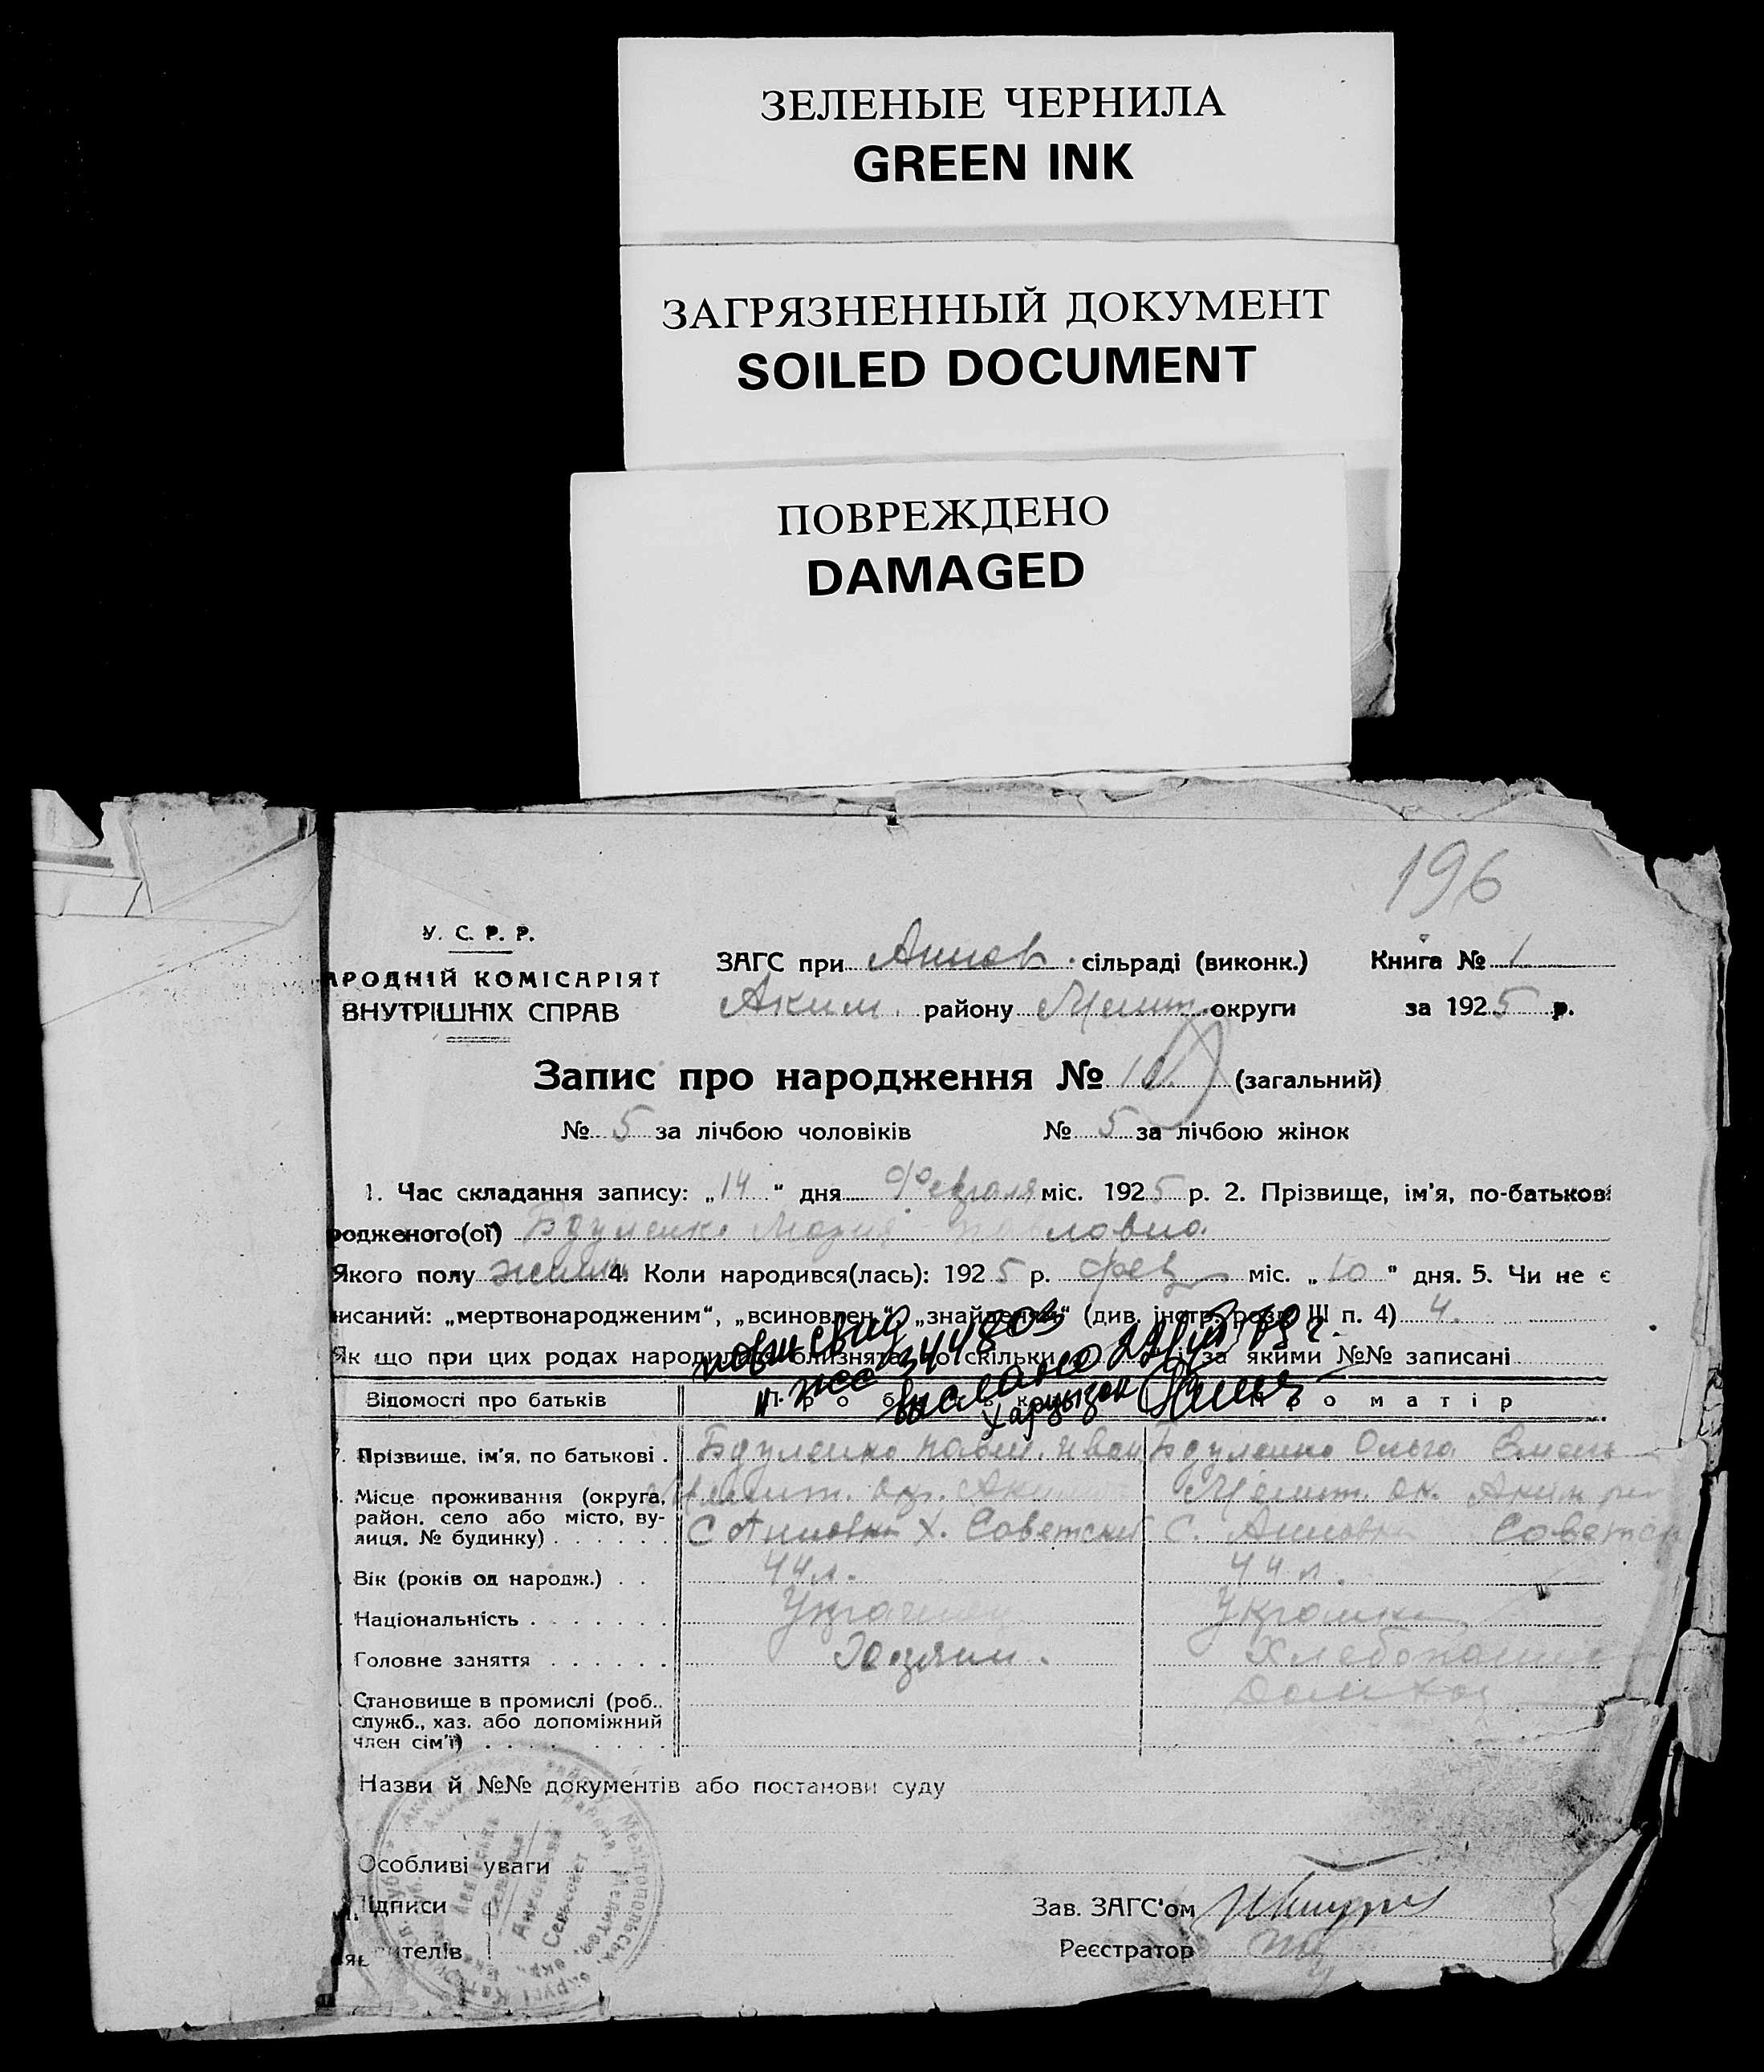 ЗЕЛЕНЫЕ ЧЕРНИЛА
GREEN INK
ЗАГРЯЗНЕННЫЙ ДОКУМЕНТ
SOILED DOCUMENT
ПОВРЕЖДЕНО
DAMAGED
196
У. С. Р. Р.
АРОДНІЙ КОМІСАРІЯТ
ВНУТРІШНІХ СПРАВ
ЗАГС при Аннов. сільраді (виконк.) Книга № 1
Аким. району Мелит. округи за 1925 р.
Запис про народження № 10 (загальний)
№ 5 за лічбою чоловіків № 5 за лічбою жінок
1. Час складання запису: „14" дня Февраля міс. 1925 р. 2. Прізвище, ім'я, по-батькові
родженого(ої) Мария Павловна
Якого полу 4. Коли народився(лась): 1925 р. фев міс. „10" дня. 5. Чи не є
исаний: „мертвонародженим", „всиновлен.", „знайденим" (див. інстр. розд. III п. 4) 4.
Як що при цих родах народилися близнята, то скільки і за якими №№ записані
повт свид
II-ЖС 344803
выслано
Харцызск
Відомості про батьків Про батька Про матір
7. Прізвище, ім'я, по батькові . Павл. Иван Ольга Емель
Місце проживання (округа, Мелит. ок. Аким Мелит. ок. Аким
район, село або місто, ву- С Анновка Х. Советский С. Анновка Советск
лиця, № будинку) . . . . . .
Вік (років од народж.) . . 44 л. 44 л.
Національність . . . . . . . Украинец Украинка
Головне заняття . . . . . . Хлебопашес
Становище в промислі (роб., Домхоз
служб., хаз. або допоміжний
член сім'ї) . . . . . . . . .
Назви й №№ документів або постанови суду
Особливі уваги
Підписи Зав. ЗАГС'ом
вителів Реєстратор